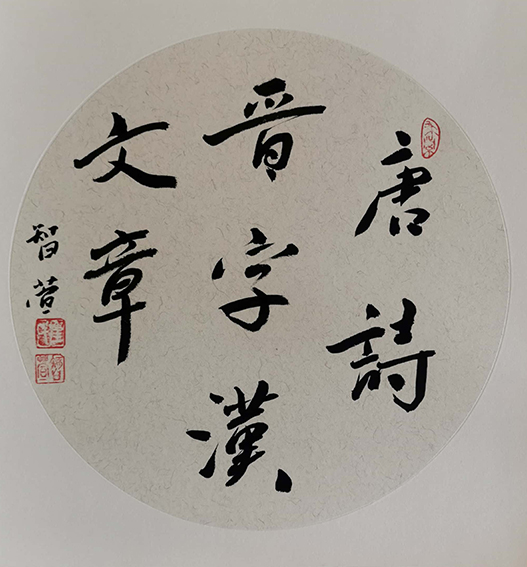 唐詩
晉字漢
文章
智營